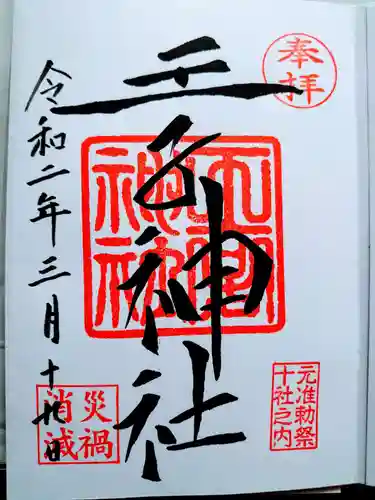 奉拝
元准勅祭
十社之内
王子神社
令和二年三月十九日
災禍
消滅